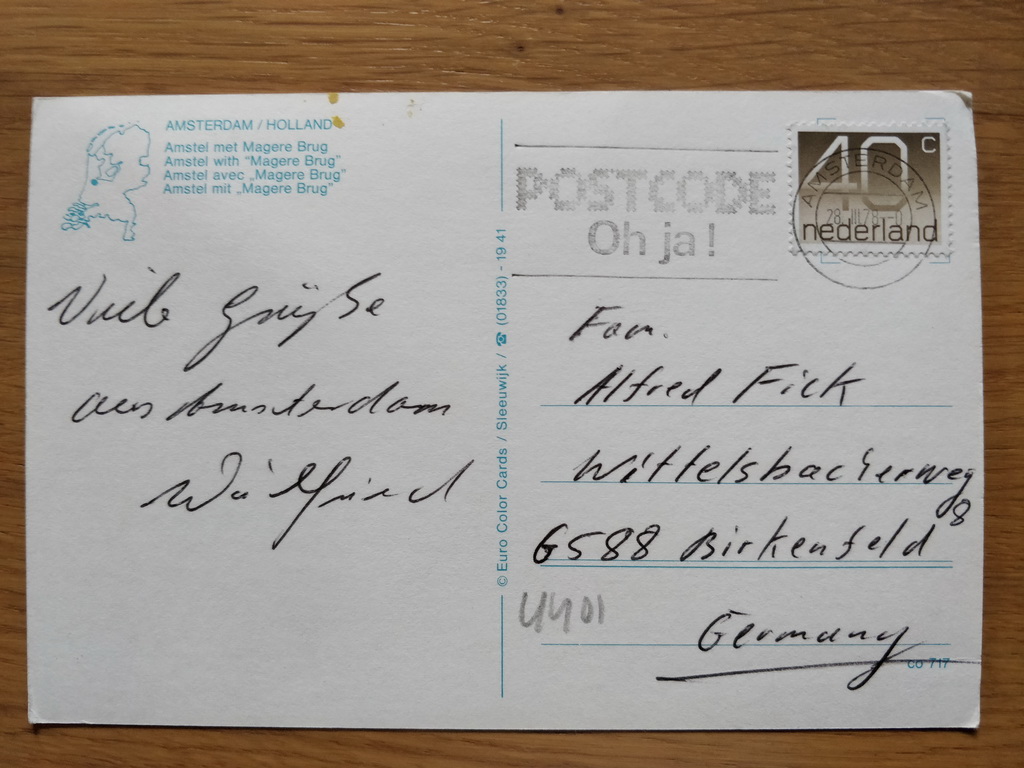 AMSTERDAM / HOLLAND
Amstel met Magere Brug
Amstel with "Magere Brug"
Amstel avec „Magere Brug"
Amstel mit „Magere Brug"
Viele Grüße
aus Amsterdam
Wilfried
© Euro Color Cards / Sleeuwijk / ☎ (01833) - 19 41
POSTCODE
Oh ja!
40 c
nederland
AMSTERDAM
28.III.78
Fam.
Alfred Fick
Wittelsbacherweg
8
6588 Birkenfeld
Germany
4401
co 717